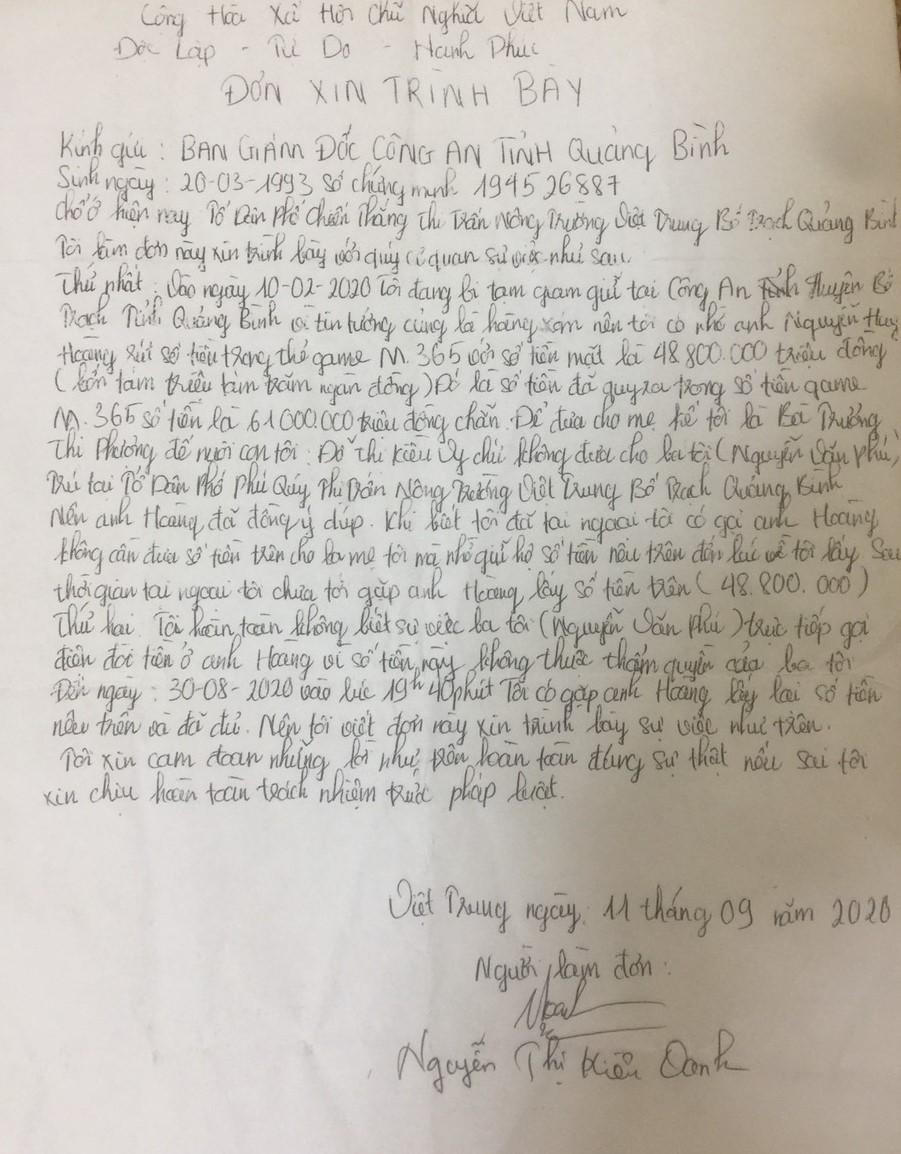 Công Hòa Xã Hôi Chũ Nghĩa Việt Nam
Đôc Lập - Tư Do - Hanh Phuc
ĐƠN XIN TRÌNH BÀY
Kính gửi : BAN GIÁM ĐỐC CÔNG AN TỈNH Quảng Bình
Sinh ngày : 20-03-1993 Số chứng minh 194526887
Chổ ở hiện nay Tổ Dân Phố Chiến Thắng Thi Trấn Nông Trường Việt Trung Bố Trạch Quảng Bình
Tôi làm đơn này xin trình bày với quý cơ quan sự việc như sau.
Thứ phất : Vào ngày 10-02-2020 Tôi đang bi tam gram giữ tai Công An Tỉnh Huyện Bố
Trạch Tỉnh Quảng Bình vì tin tưởng cũng là hàng xóm nên tôi có nhờ anh Nguyễn Huy
Hoàng rút số tiền trong thẻ game M.365 với số tiền mặt là 48.800.000 triệu đồng
(bốn tám triệu tám trăm ngan đồng) Đó là số tiền đã quy ra trong số tiền game
M.365 số tiền là 61000.000 triệu đồng chẵn. Để đưa cho mẹ kế tôi là Bà Trương
Thi Phương để nuôi con tôi : Đỗ Thi Kiều Vy chứ không đưa cho ba tôi (Nguyễn Văn Phú)
Trú tai Tổ Dân Phố Phú Quý Thi Trấn Nông Trường Việt Trung Bố Trạch Quảng Bình
Nên anh Hoàng đã đồng ý dúp. Khi biết tôi đã tai ngoai tôi có goi anh Hoàng
không cần đưa số tiền trên cho ba mẹ tôi mà nhờ giữ hộ số tiền nêu trên đến lúc về tôi lấy. Sau
thời gian tai ngoai tôi chưa tới gặp anh Hoàng lấy số tiền trên (48.800.000)
Thứ hai. Tôi hoàn toàn không biết sự việc ba tôi (Nguyễn Văn Phú) trực tiếp gọi
điện đòi tiền ở anh Hoang vì số tiền này không thuộc thẩm quyền của ba tôi
Đến ngày : 30-08-2020 vào lúc 19h 40phút Tôi có gặp anh Hoàng lấy lai số tiền
nêu trên và đã đủ. Nên tôi viết đơn này xin trình bày sự việc như trên.
Tôi xin cam đoan những lời như trên hoàn toàn đúng sự thật nếu sai tôi
xin chiu hoàn toàn trách nhiệm trước pháp luật.
Việt Trung ngày 11 tháng 09 năm 2020
Người làm đơn :
Nguyễn Thị Kiều Oanh